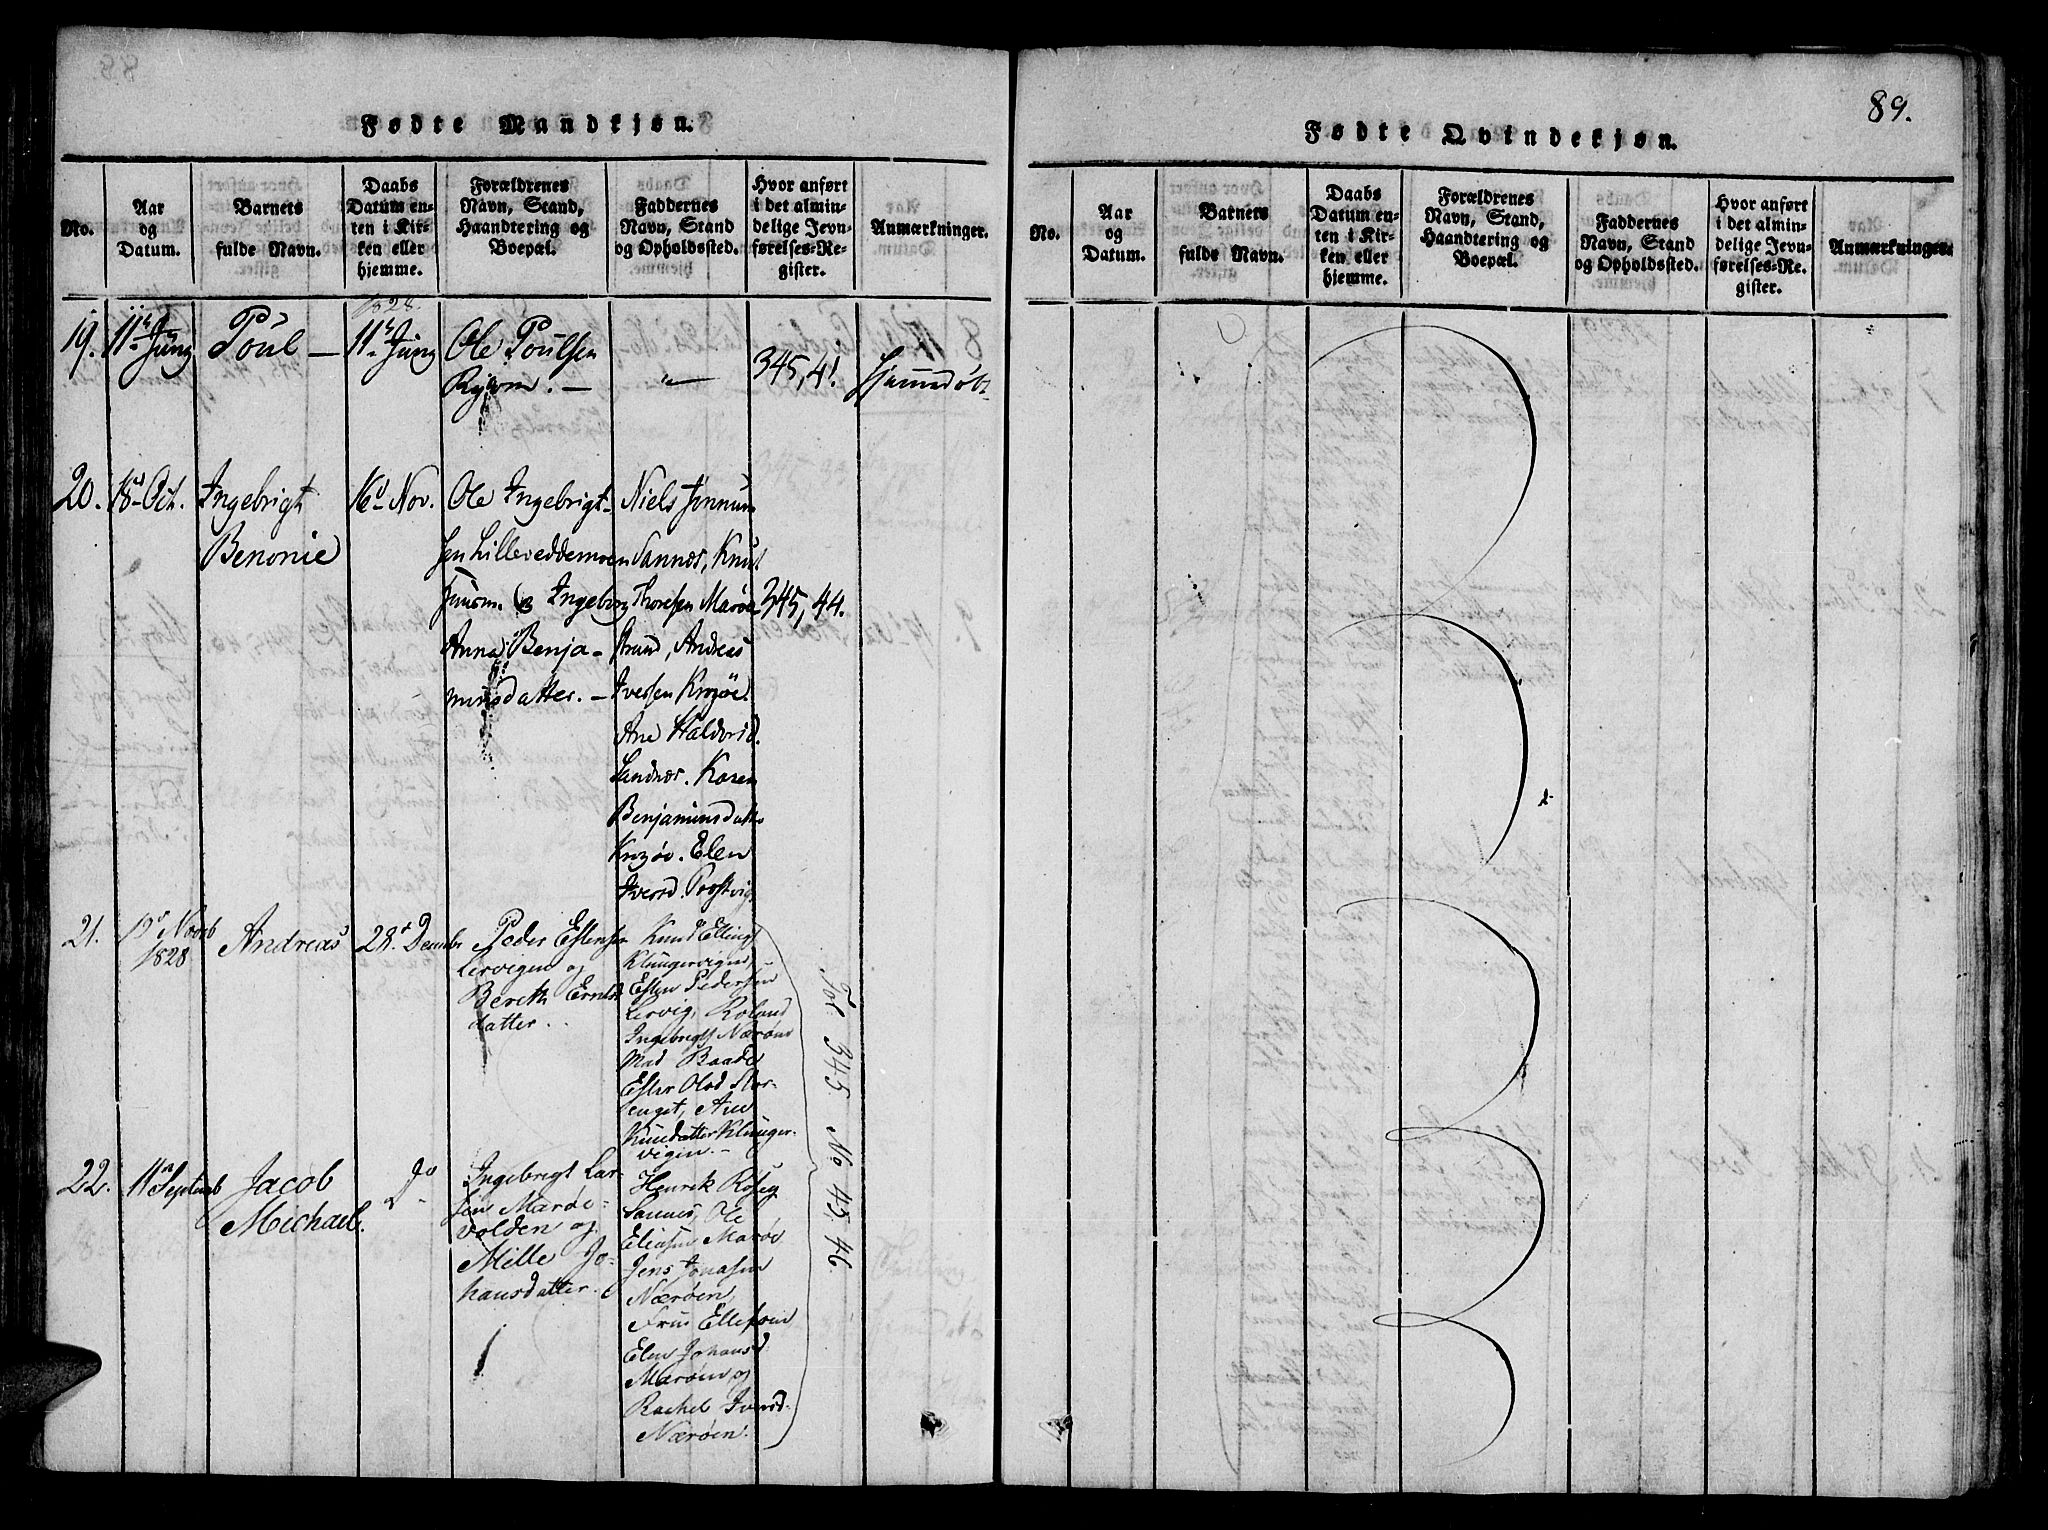 Fødte Mandkjøn.
No.
Aar
og
Datum.
Barnets
fulde Navn.
Daabs
Datum en-
ten i Kir-
ken eller
hjemme.
Forældrenes
Navn, Stand,
Haandtering og
Boepæl.
Faddernes
Navn, Stand
og Opholdssted.
Hvor anført
i det almin-
delige Jevn-
førelses-Re-
gister.
Anmærkninger.
19.
11te Juny
Poul —
1828.
11te Juny
Ole Poulsen
—
"
345, 41.
Hjemmedøbt
20.
18d Oct.
Ingebrigt
Benonie
16d Nov.
Ole Ingebrigt-
sen Lilleveddemoen
Huusm. og Ingeborg
Anna Benja-
minsdatter. —
Niels Jonnum
Sannæs, Knut
Thoresen Marøe
Strand, Andreas
Iversen Krogøe.
Ane Haldorsd.
Sandnæs. Karen
Benjaminsdatter
Krogøe. Elen
Iversd.
345, 44.
21.
19d Novb
1828
Andreas
28d Decembr
Peder Estensen
Lervigen og
Bereth Ernsts
datter.
Knud Ellings
Klungervigen,
Esten Pedersen
Lervig, Roland
Ingebrigts Nærøen
Mad Baade
Ester Olsd
Ane
Knudatter Klunger-
vigen. —
Fol 345 No 45. 46
22.
11te Septemb
Jacob
Michael.
Do
Ingebrigt Lar-
sen Marøe-
volden og
Mille Jo-
hansdatter.
Henrik
Sannes, Ole
Eliasen Marøe
Jens Jonasen
Nærøen,
Elen Johansd
Marøen, og
Rachel Iversd.
Nærøen.
89.
Fødte Qvindekjøn.
No.
Aar
og
Datum.
Barnets
fulde Navn.
Daabs
Datum en-
ten i Kir-
ken eller
hjemme.
Forældrenes
Navn, Stand,
Haandtering og
Boepæl.
Faddernes
Navn, Stand
og Opholdssted.
Hvor anført
i det almin-
delige Jevn-
førelses-Re-
gister.
Anmærkninger.